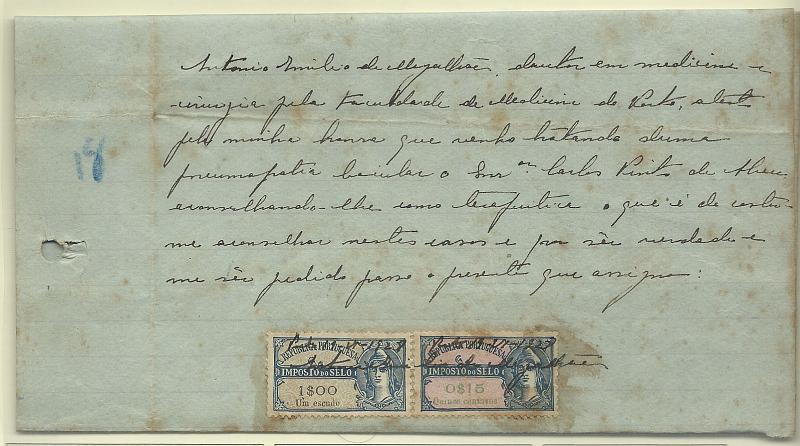 Antonio Emilio de Magalhães, doutor em medicina e
cirurgia pela Faculdade de Medicina do Porto, atesto
pela minha honra que venho tratando duma
pneumopatia bacilar o Snr. Carlos Pinto de Abreu
aconselhando-lhe como terapeutica o que é de costu-
me aconselhar nestes casos e por sêr verdade e
me sêr pedido passo o presente que assigno:
Porto 1923 Porto 1923
REPUBLICA PORTUGUESA REPUBLICA PORTUGUESA
IMPOSTO DO SELO IMPOSTO DO SELO
1$00 0$15
Um escudo Quinze centavos